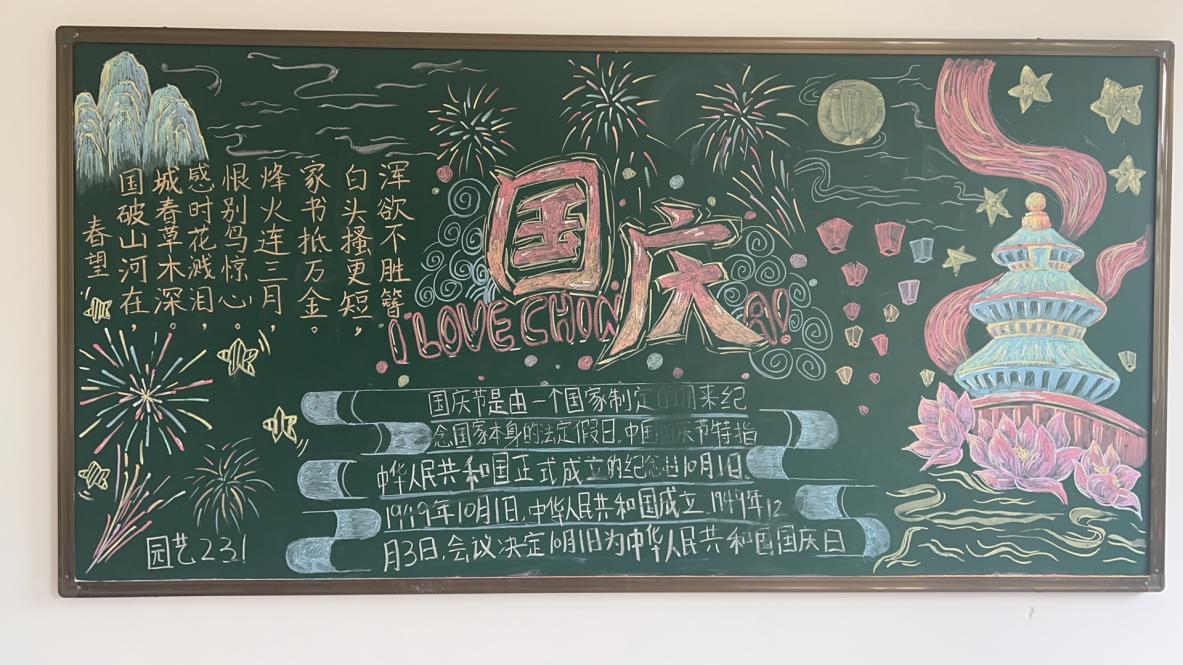 春望
国破山河在,
城春草木深。
感时花溅泪,
恨别鸟惊心。
烽火连三月,
家书抵万金。
白头搔更短,
浑欲不胜簪
国庆
I LOVE CHINA!
国庆节是由一个国家制定的用来纪
念国家本身的法定假日.中国国庆节特指
中华人民共和国正式成立的纪念日10月1日.
1949年10月1日.中华人民共和国成立.1949年12
月3日.会议决定10月1日为中华人民共和国国庆日
园艺231